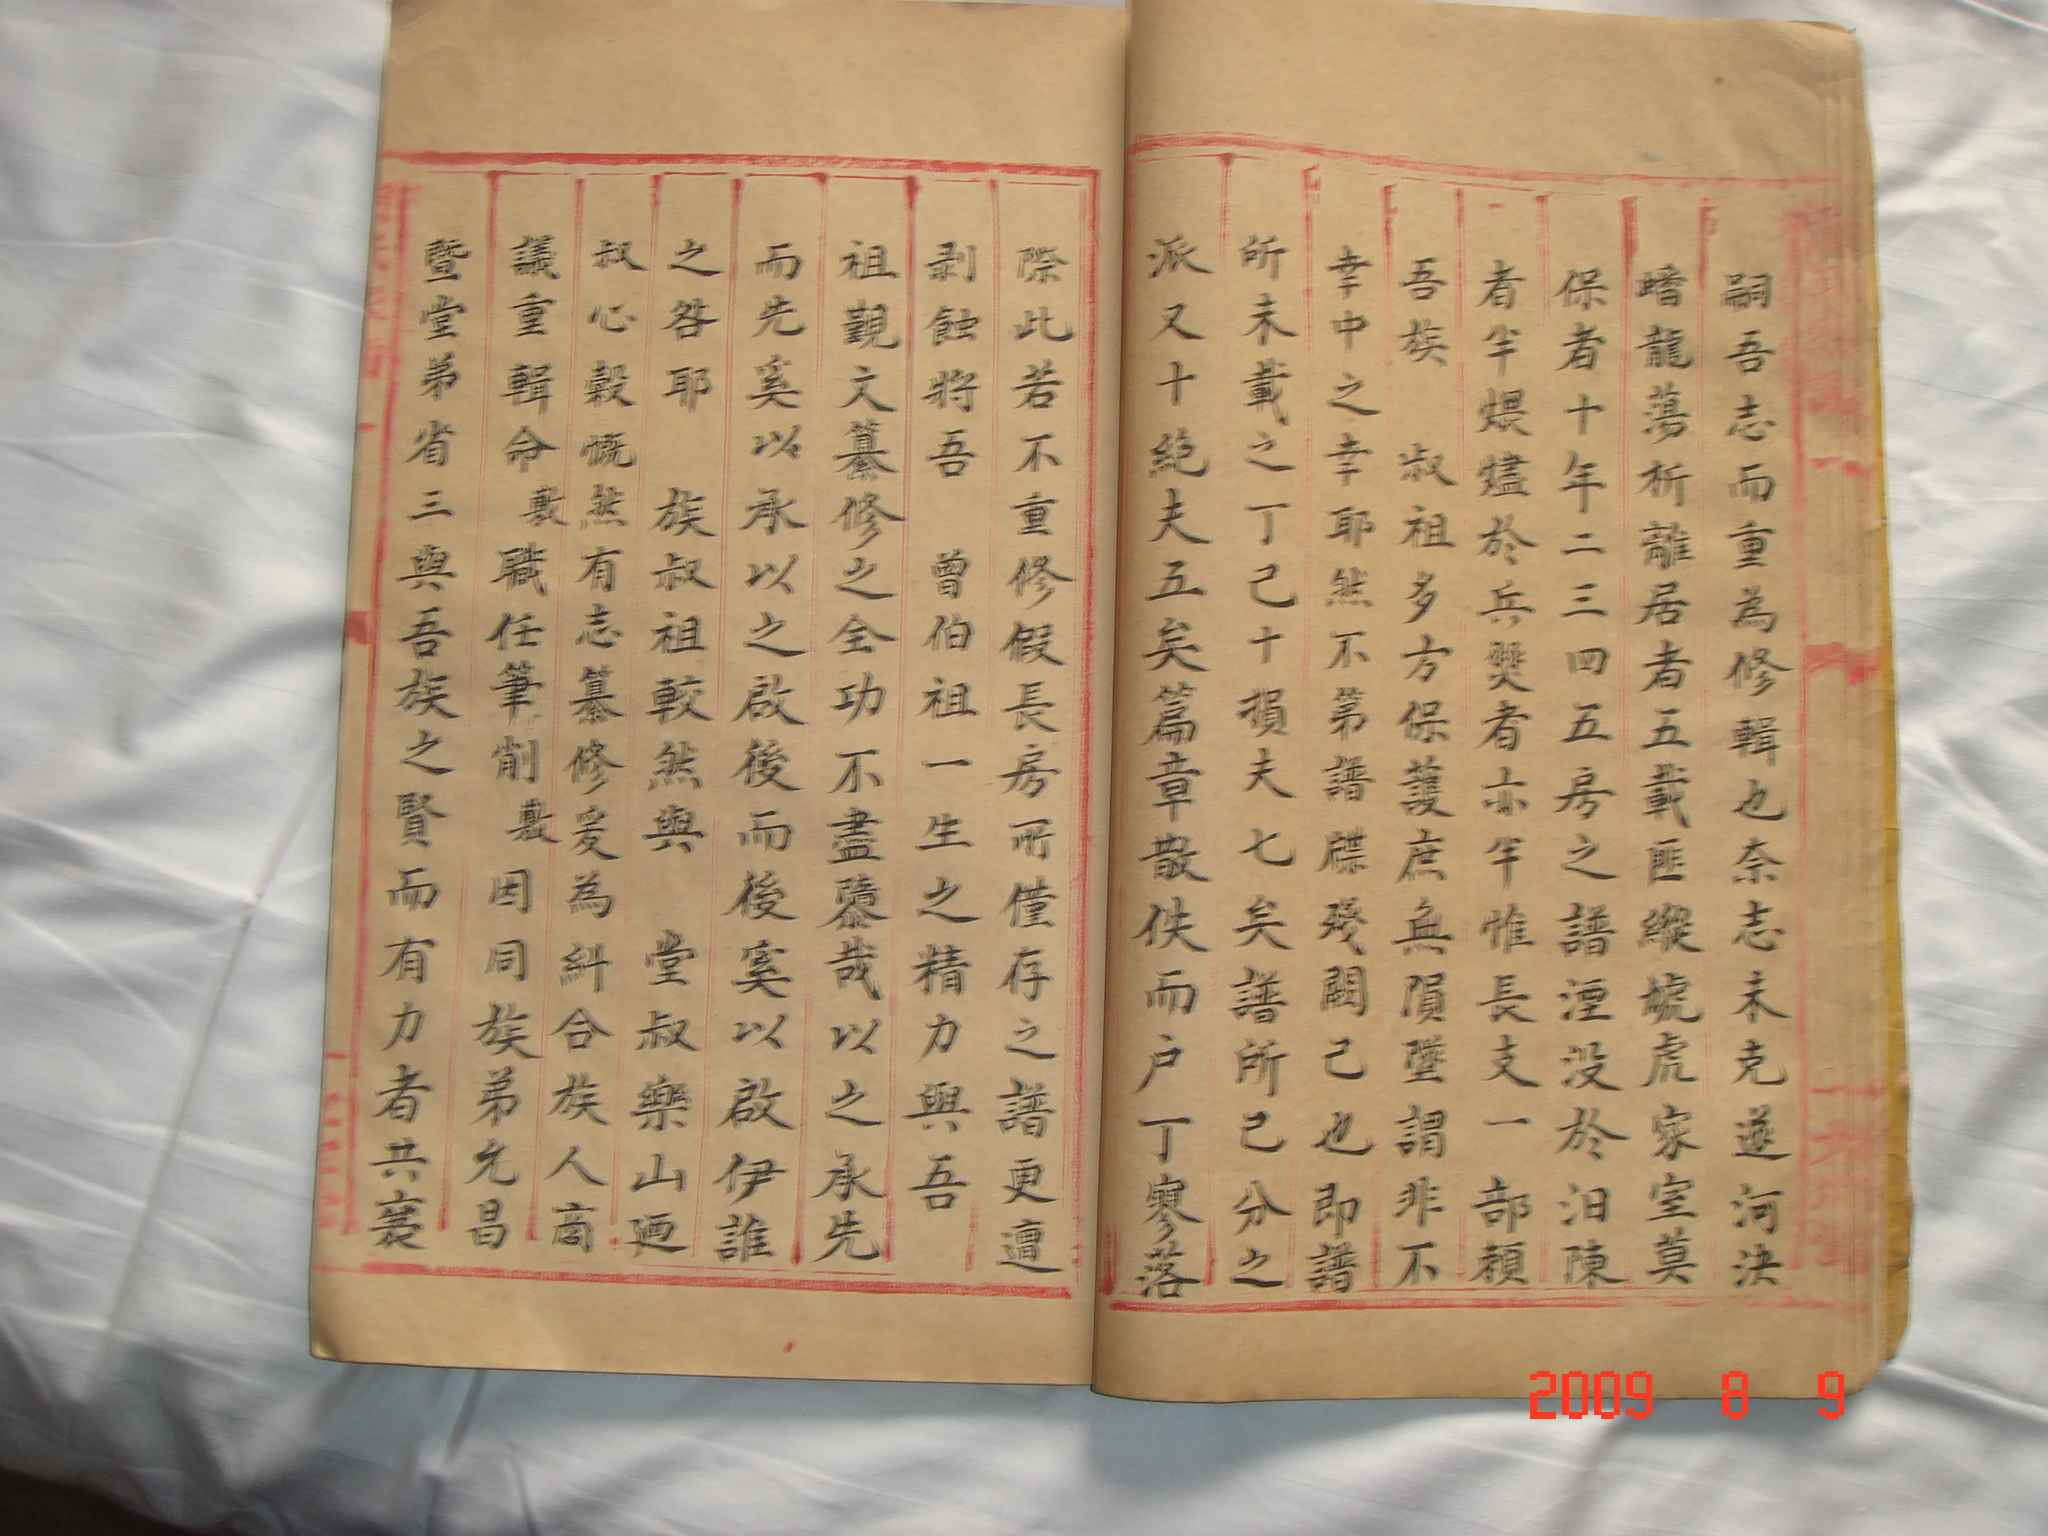 嗣吾志而重為修輯也奈志未克遂河決
蟠龍蕩析離居者五載匪縱虓虎家室莫
保者十年二三四五房之譜湮没於汨陳
者半煨燼於兵燹者亦半惟長支一部頼
吾族 叔祖多方保護庶無隕墜謂非不
幸中之幸耶然不第譜牒殘闕已也即譜
所未載之丁已十損夫七矣譜所已分之
派又十絶夫五矣篇章散佚而户丁寥落
際此若不重修假長房所僅存之譜更遭
剥蝕將吾 曾伯祖一生之精力與吾
祖覲文纂修之全功不盡隳哉以之承先
而先奚以承以之啟後而後奚以啟伊誰
之咎耶 族叔祖較然與 堂叔樂山迺
叔心穀慨然有志纂修爰為糾合族人商
議重輯命敷職任筆削敷因同族弟允昌
暨堂弟省三與吾族之賢而有力者共襄
2009 8 9